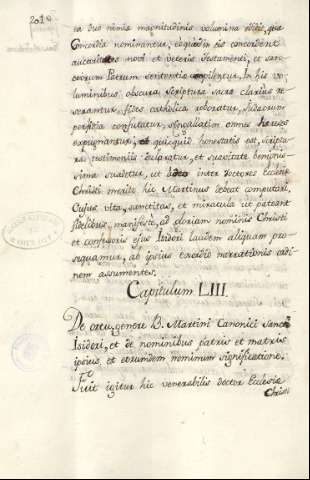 201
ta duo nimis magnitudinis volumina edidit, quæ
Concordia nominantur, eo quod in eis concordent
auctoritates novi et veteris Testamenti, et sanc
torum Patrum sententiæ compilentur. In his vo
luminibus obscura Scripturæ Sacræ clarius re
serantur, fides catholica roboratur, Judæorum
perfidia confutatur, singillatim omnes hæreses
expugnantur, et quicquid honestatis est, scriptu
ræ testimoniis declaratur, et suavitate benignis
sima suadetur, ut inter doctores Ecclesiæ
Christi merito hic Martinus debeat computari.
Cujus vita, sanctitas, et miracula ut pateant
fidelibus manifesta, ad gloriam nominis Christi
et confessoris ejus Isidori laudem aliquam pro
sequamur, ab ipsius exordio narrationis ordi
nem assumentes.
Capitulum LIII.
De ortu, genere B. Martini Canonici Sancti
Isidori, et de nominibus patris et matris
ipsius et eorumdem nominum significatione.
Fuit igitur hic venerabilis doctor Ecclesiæ
Christi